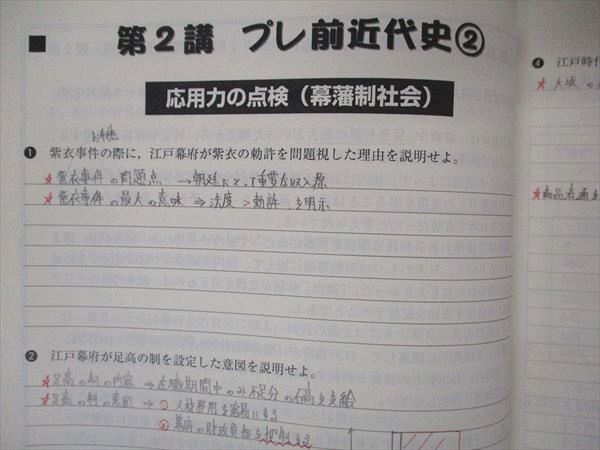 第2講 プレ前近代史②
応用力の点検（幕藩制社会）
❶ 紫衣事件の際に，江戸幕府が紫衣の勅許を問題視した理由を説明せよ。
★紫衣事件の問題点 →朝廷にとって重要な収入源
★紫衣事件の最大の意味 ⇒法度＞勅許を明示
❷ 江戸幕府が足高の制を設定した意図を説明せよ。
★足高の制の内容 →在職期間中のみ不足分の石高を支給
★足高の制の意図 →① 人材登用を容易にする
② 幕府の財政負担を抑制する
❹ 江戸時代
★大坂の
★商品流通